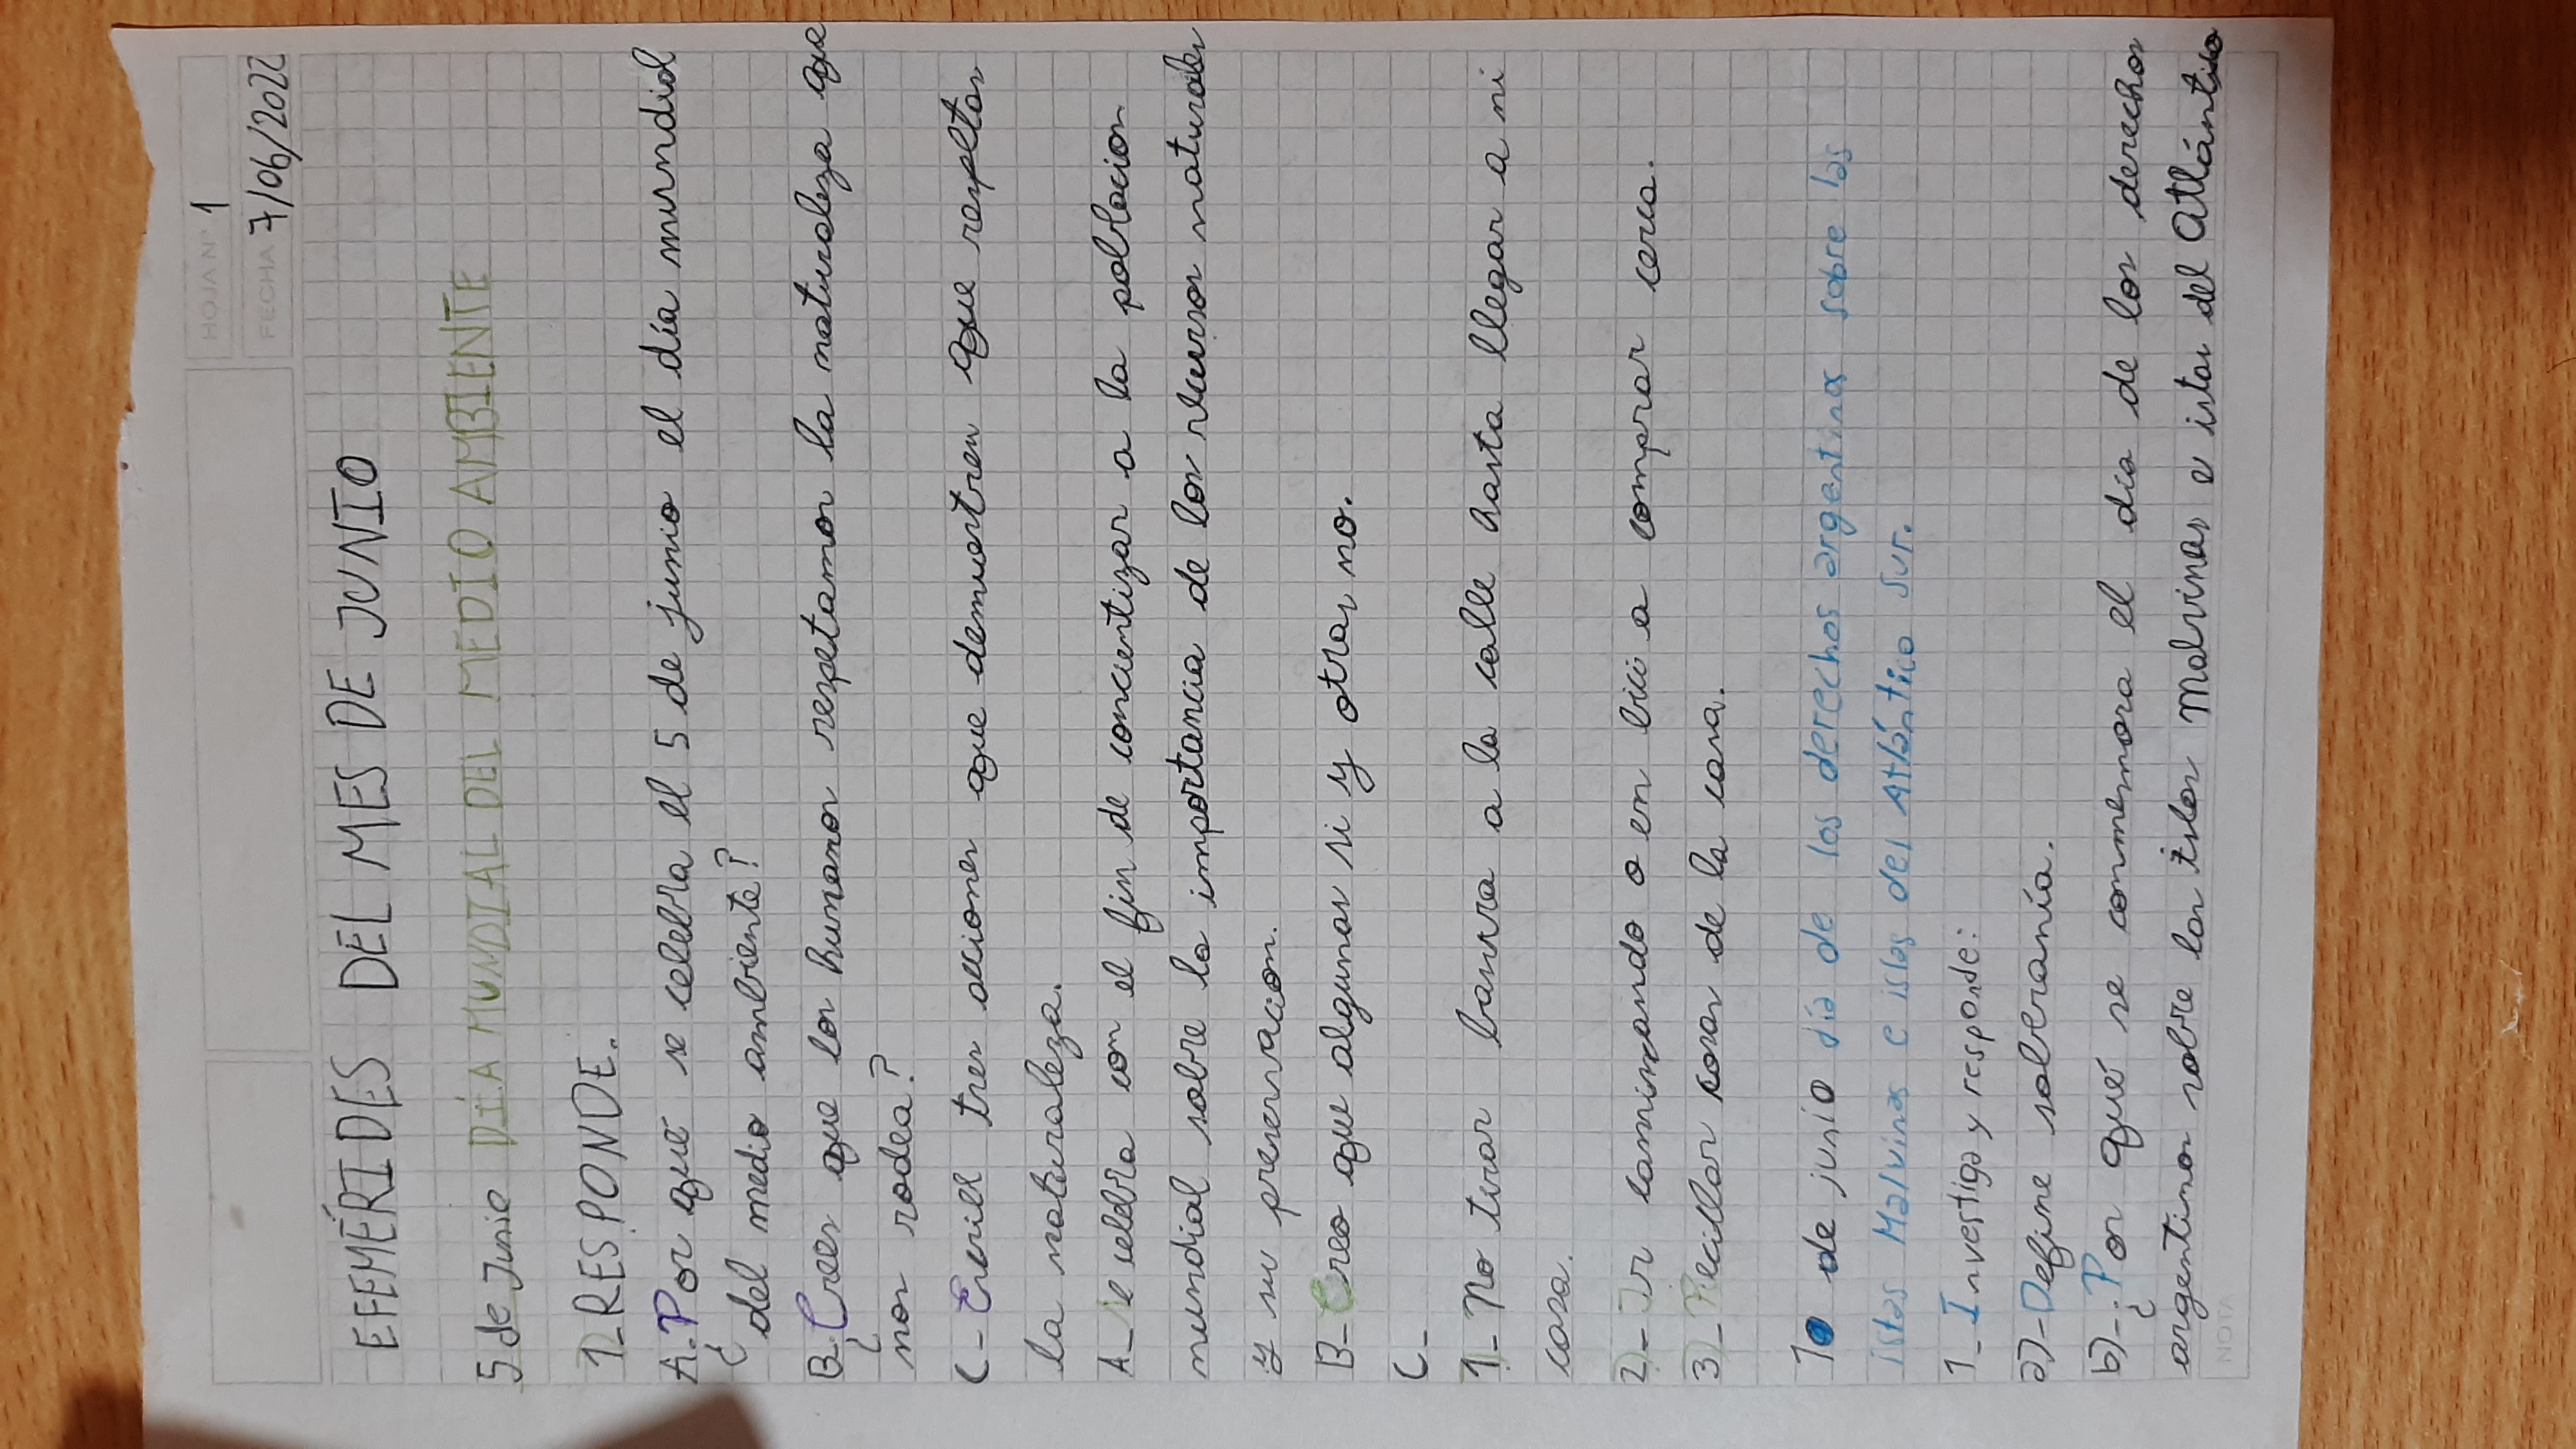 HOJA Nº 1
FECHA 7/06/2022
EFEMÉRIDES DEL MES DE JUNIO
5 de Junio DÍA MUNDIAL DEL MEDIO AMBIENTE
1_RESPONDE.
A-¿Por qué se celebra el 5 de junio el día murndial
del medio ambiente?
B-¿Crees que los humanos respetamos la naturaleza que
nos rodea?
C-Escribe tres acciones que demuestren que respetas
la naturaleza.
A_Se celebra con el fin de concientizar a la poblacion
mundial sobre la importancia de los recursos naturales
y su preservacion.
B-Creo que algunas si y otras no.
C-
1_No tirar basura a la calle hasta llegar a mi
casa.
2)-Ir caminando o en bici a comprar cerca.
3)-Reciclar cosas de la casa.
10 de junio día de los derechos argentinos sobre las
islas Malvinas e islas del Atlántico Sur.
1_Investiga y responde:
a)-Define soberanía.
b)-¿Por qué se conmemora el día de los derechos
argentinos sobre las islas Malvinas e islas del Atlántico
NOTA